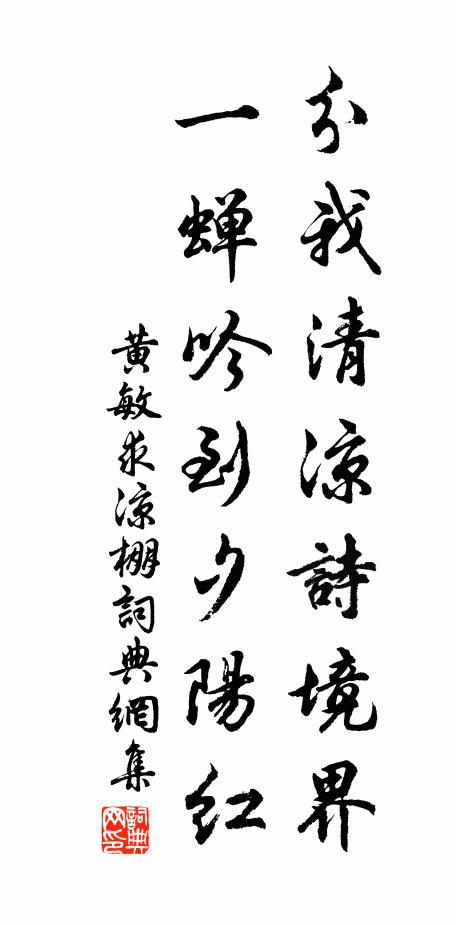 分我清涼詩境界
一蝉吟到夕陽紅
黃敏求涼棚詞典網集
詞典
网印